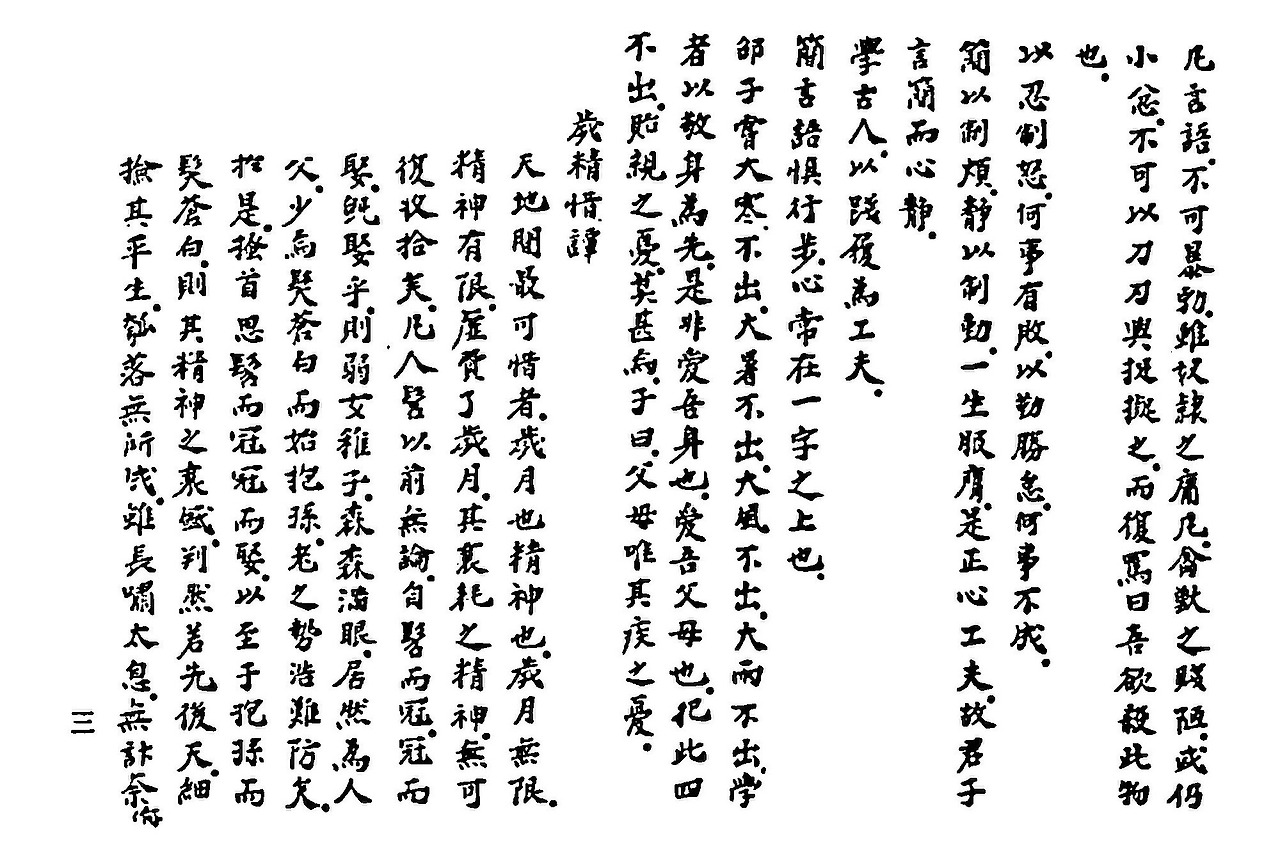 凡言語。不可暴勃。雖奴隷之庸凡。禽獸之賤陋。或仍
小忿。不可以刀刃與挺擬之。而復罵曰吾欲殺此物
也。
以忍制怒。何事有敗。以勤勝怠。何事不成。
簡以制煩。靜以制動。一生服膺。是正心工夫。故君子
言簡而心靜。
學古人。以踐履為工夫。
簡言語惧行步。心常在一字之上也。
邵子嘗大寒不出。大暑不出。大風不出。大雨不出。學
者以敬身為先。是非愛吾身也。愛吾父母也。犯此四
不出。貽親之憂。莫甚焉。子曰。父母唯其疾之憂。
歲精惜譚
天地間最可惜者。歲月也精神也。歲月無限。
精神有限。虛費了歲月。其衰耗之精神。無可
復收拾矣。凡人髫以前無論。自髫而冠。冠而
娶。旣娶乎。則弱女稚子。森森滿眼。居然為人
父。少焉髮蒼白而始抱孫。老之勢浩難防矣。
於是。搔首思髫而冠冠而娶。以至于抱孫而
髮蒼白。則其精神之衰盛。判然若先後天。細
撿其平生。瓠落無所成。雖長嘯太息。無計奈何
三